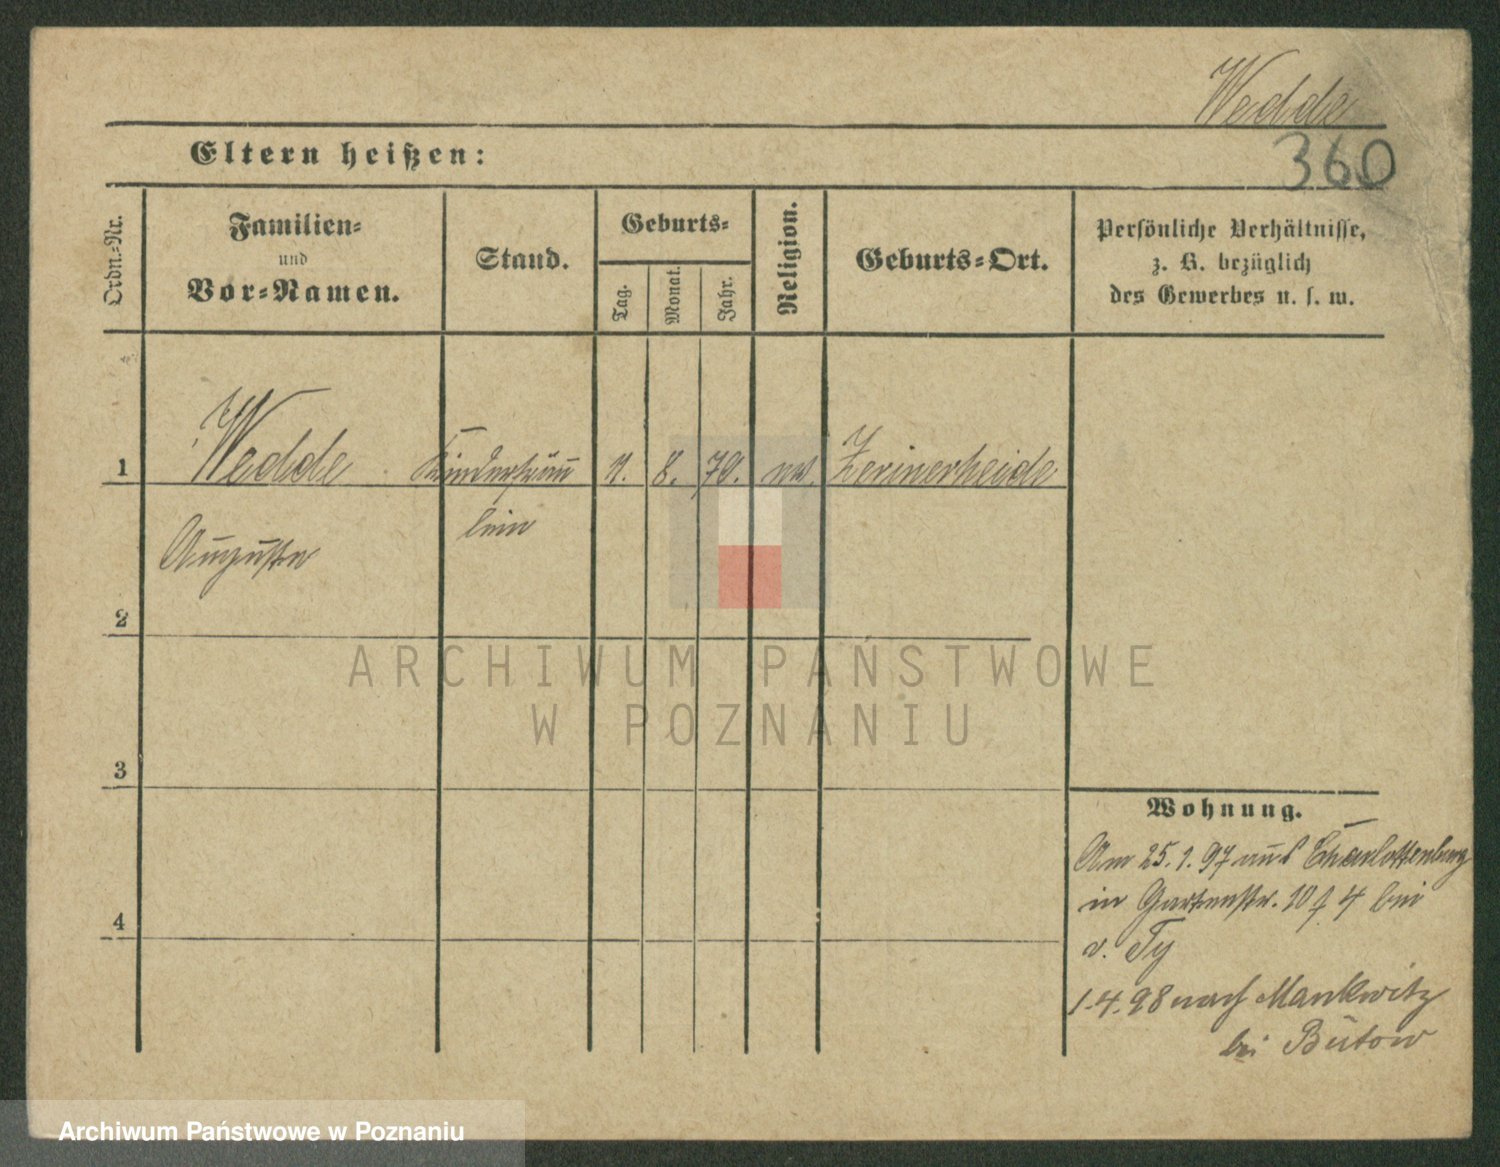 Wedde
Eltern heißen:
360
Ordn.-Nr.
Familien-
und
Vor-Namen.
Stand.
Geburts-
Tag.
Monat.
Jahr.
Religion.
Geburts-Ort.
Persönliche Verhältnisse,
z. B. bezüglich
des Gewerbes u. s. w.
1
Wedde
Kinderfräu
8.
79.
ev.
Zerinerheide
lein
Auguste
2
ARCHIWUM PAŃSTWOWE
W POZNANIU
3
Wohnung.
Am 25.1.97 aus Charlottenburg
in Gartenstr. 10 4 bei
v. Ty
4
1.4.98 nach Mankwitz
bei Bütow
Archiwum Państwowe w Poznaniu